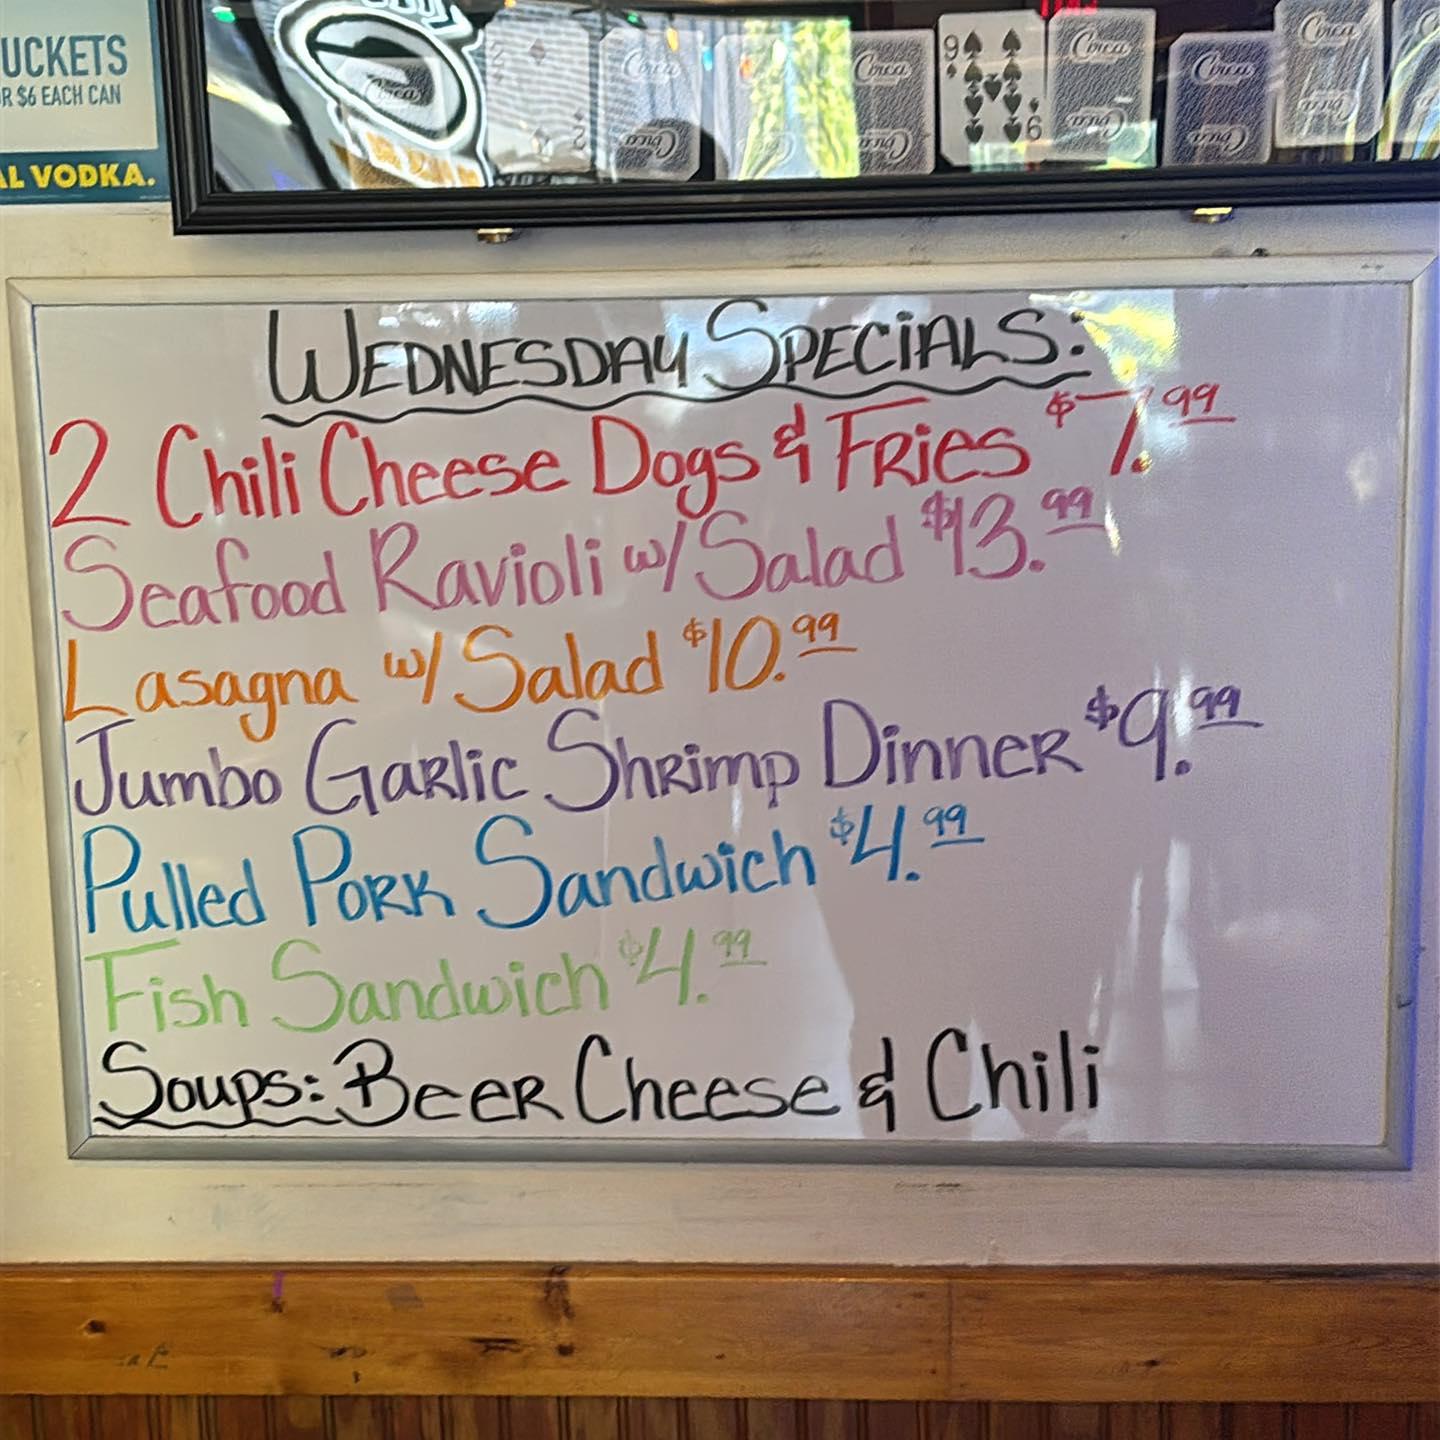 UCKETS
R $6 EACH CAN
AL VODKA.
Circa
Circa
Circa
9
6
Circa
Circa
Circa
WEDNESDAY SPECIALS:
2 Chili Cheese Dogs & FRies $7.99
Seafood Ravioli w/ Salad $13.99
Lasagna w/ Salad $10.99
Jumbo GaRlic ShRimp DinneR $9.99
Pulled PoRK Sandwich $4.99
Fish Sandwich $4.99
Soups: BeeR Cheese & Chili